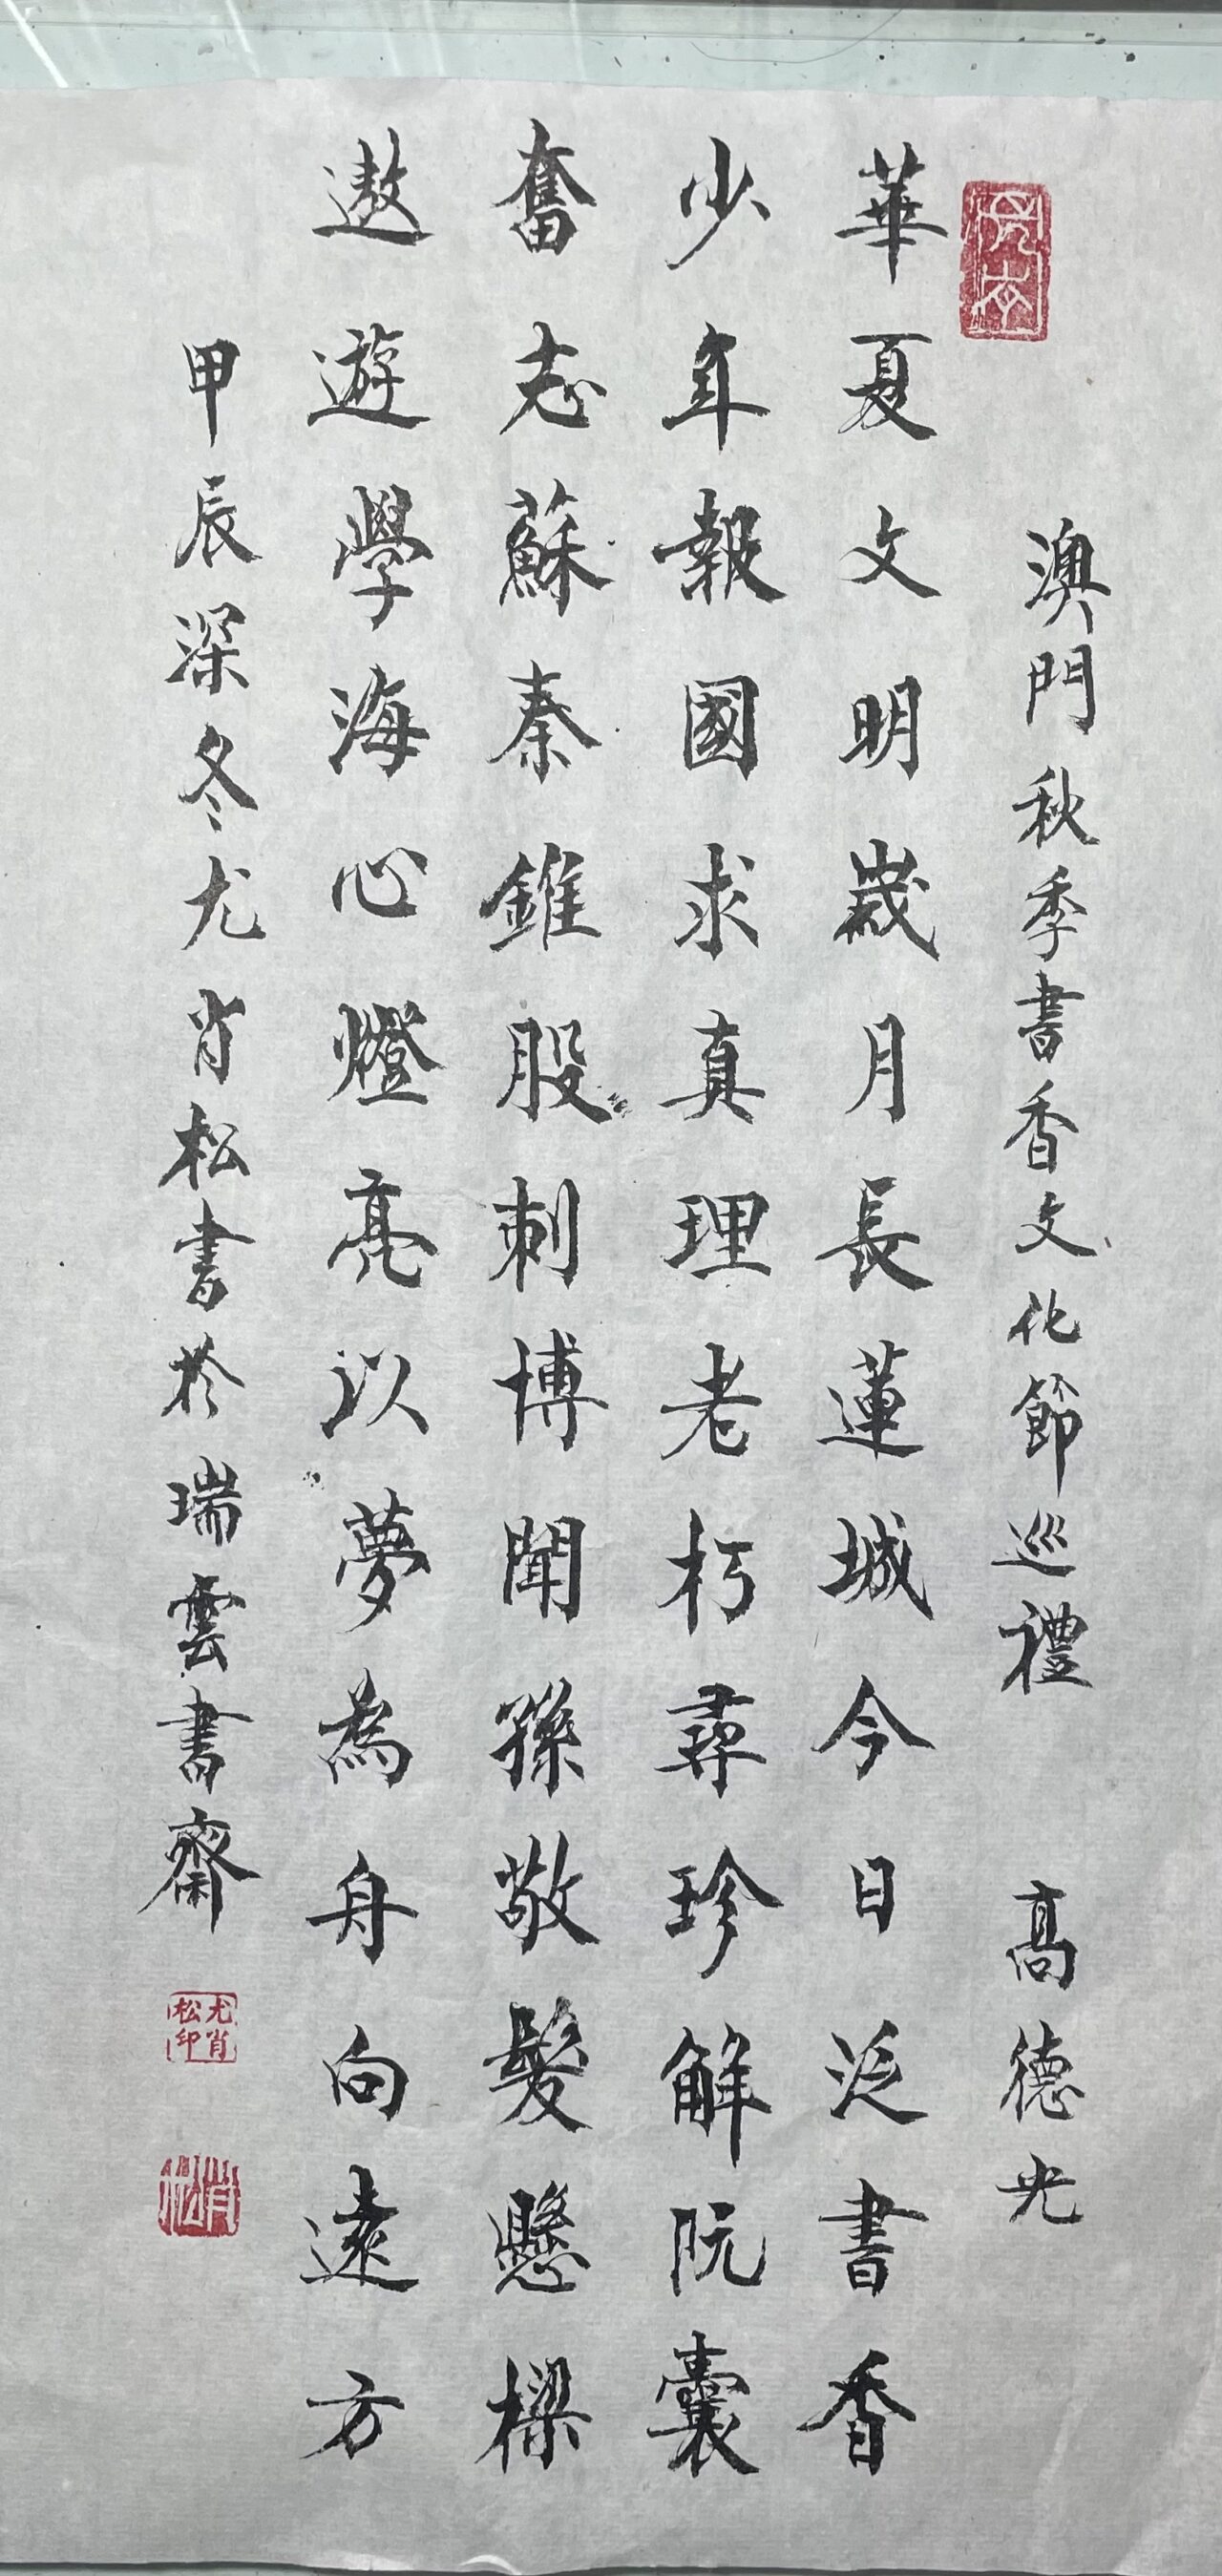 澳門秋季書香文化節巡禮 高德光
華夏文明歲月長蓮城今日泛書香
少年報國求真理老朽尋珍解阮囊
奮志蘇秦錐股刺博聞孫敬髮懸樑
遨遊學海心燈亮以夢為舟向遠方
甲辰深冬尤肖松書於瑞雲書齋
尤肖松印
肖松